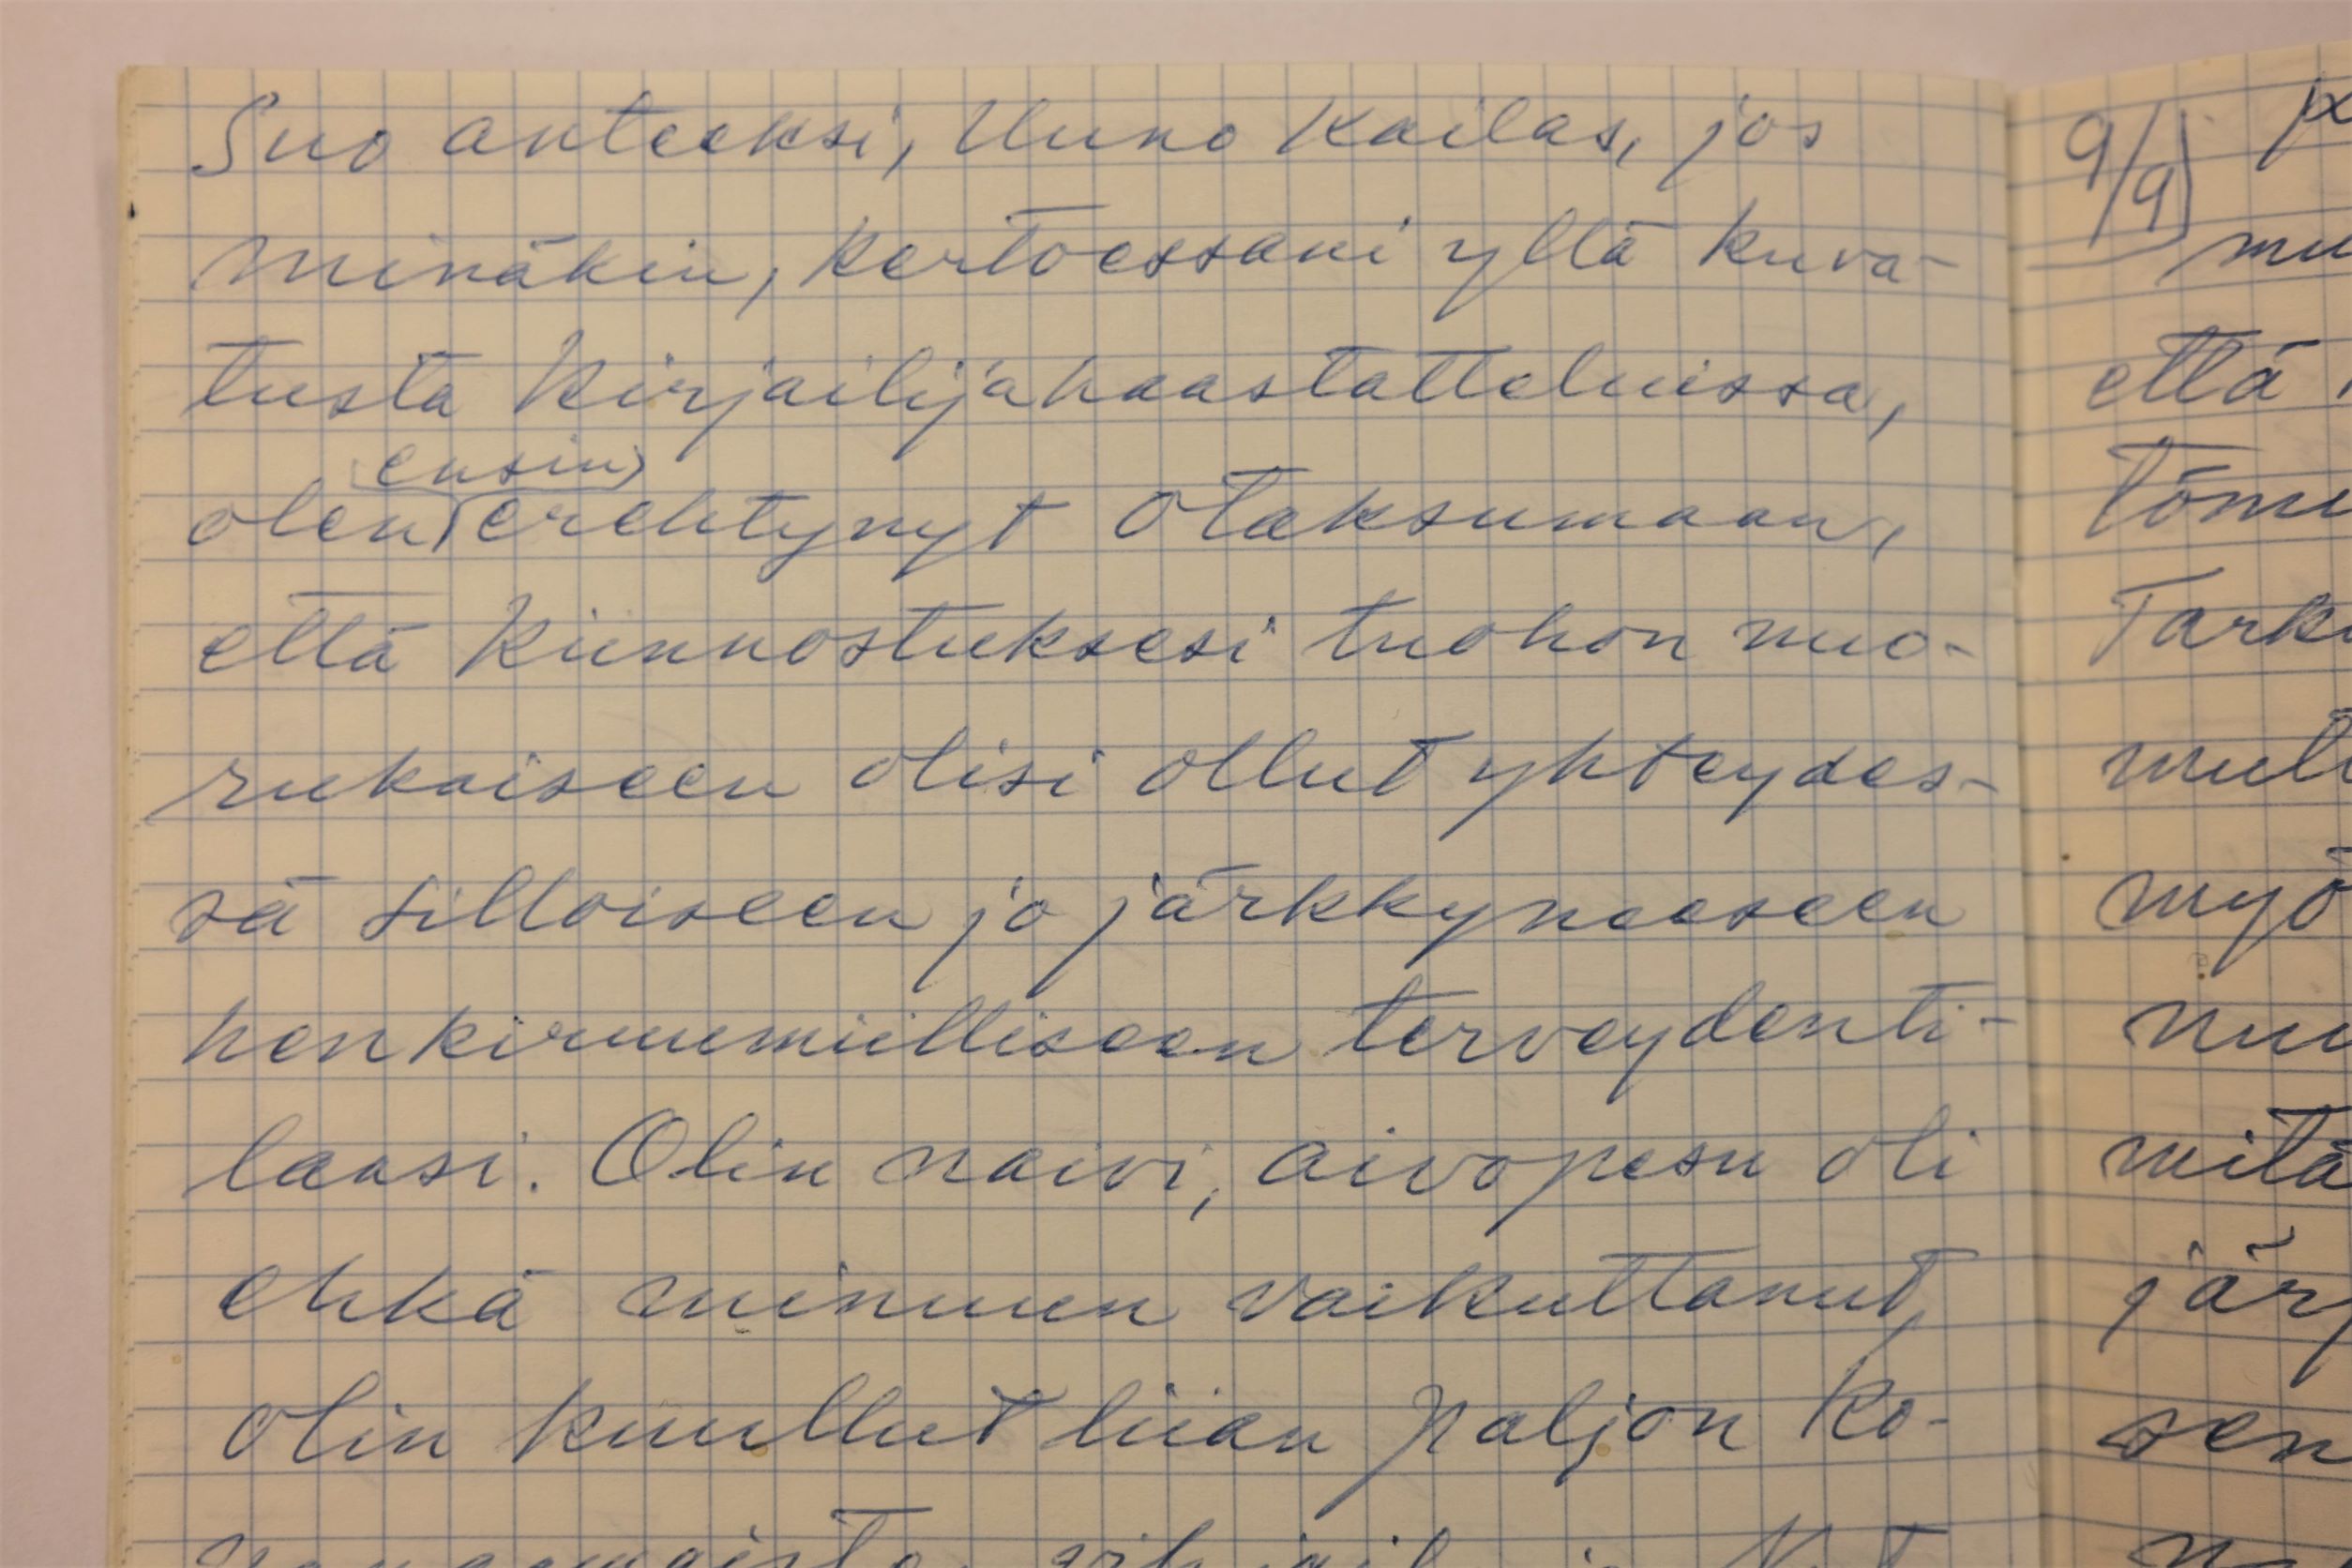 Suo anteeksi, Uuno Kailas, jos
minäkin, kertoessani yllä kuva-
tusta kirjailijahaastatteluissa,
ensin
olen erehtynyt otaksumaan,
että kiinnostuksesi tuohon nuo-
rukaiseen olisi ollut yhteydes-
sä silloiseen jo järkkyneeseen
henkiruumiilliseen terveydenti-
laasi. Olin naivi, aivopesu oli
ehkä minuun vaikuttanut,
olin kuullut liian paljon ko-
9/9)
mu
että
Tark
myö
mitä
jär
sen